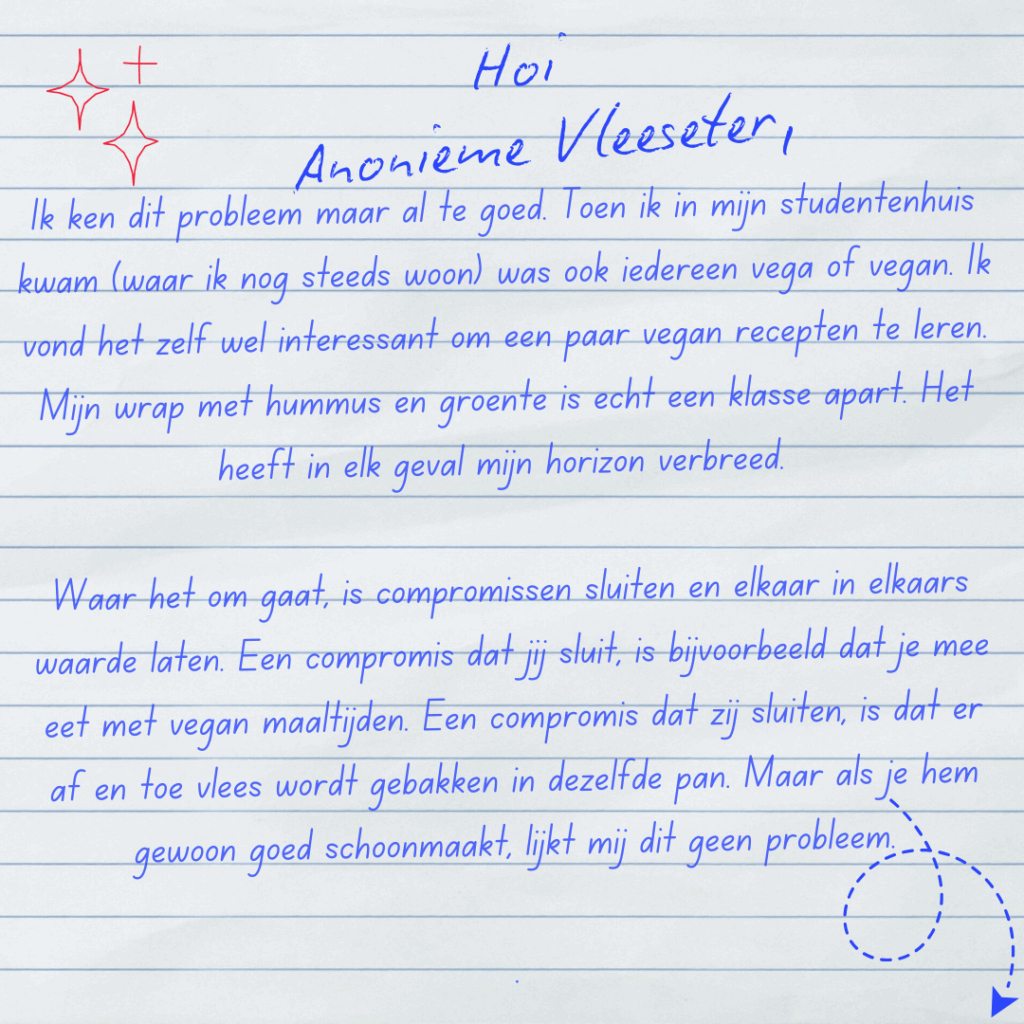 Hoi
Anonieme Vleeseter,
Ik ken dit probleem maar al te goed. Toen ik in mijn studentenhuis
kwam (waar ik nog steeds woon) was ook iedereen vega of vegan. Ik
vond het zelf wel interessant om een paar vegan recepten te leren.
Mijn wrap met hummus en groente is echt een klasse apart. Het
heeft in elk geval mijn horizon verbreed.
Waar het om gaat, is compromissen sluiten en elkaar in elkaars
waarde laten. Een compromis dat jij sluit, is bijvoorbeeld dat je mee
eet met vegan maaltijden. Een compromis dat zij sluiten, is dat er
af en toe vlees wordt gebakken in dezelfde pan. Maar als je hem
gewoon goed schoonmaakt, lijkt mij dit geen probleem.